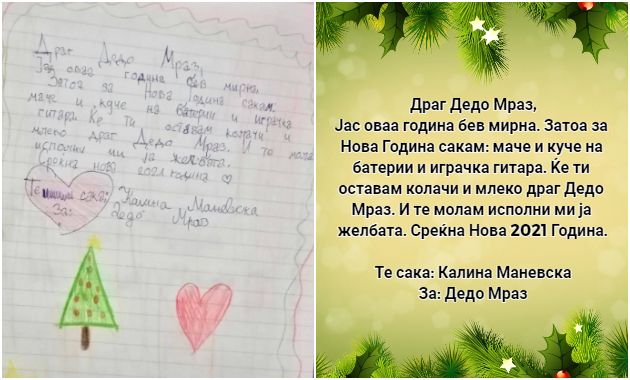 Драг Дедо Мраз,
Јас оваа година бев мирна.
Затоа за Нова Година сакам
маче и куче на батерии и играчка
гитара. Ќе ти оставам колачи и
млеко драг Дедо Мраз. И те молам
исполни ми ја желбата.
Среќна нова 2021 година
Те сака: Калина Маневска
За: Дедо Мраз
Драг Дедо Мраз,
Јас оваа година бев мирна. Затоа за
Нова Година сакам: маче и куче на
батерии и играчка гитара. Ќе ти
оставам колачи и млеко драг Дедо
Мраз. И те молам исполни ми ја
желбата. Среќна Нова 2021 Година.
Те сака: Калина Маневска
За: Дедо Мраз